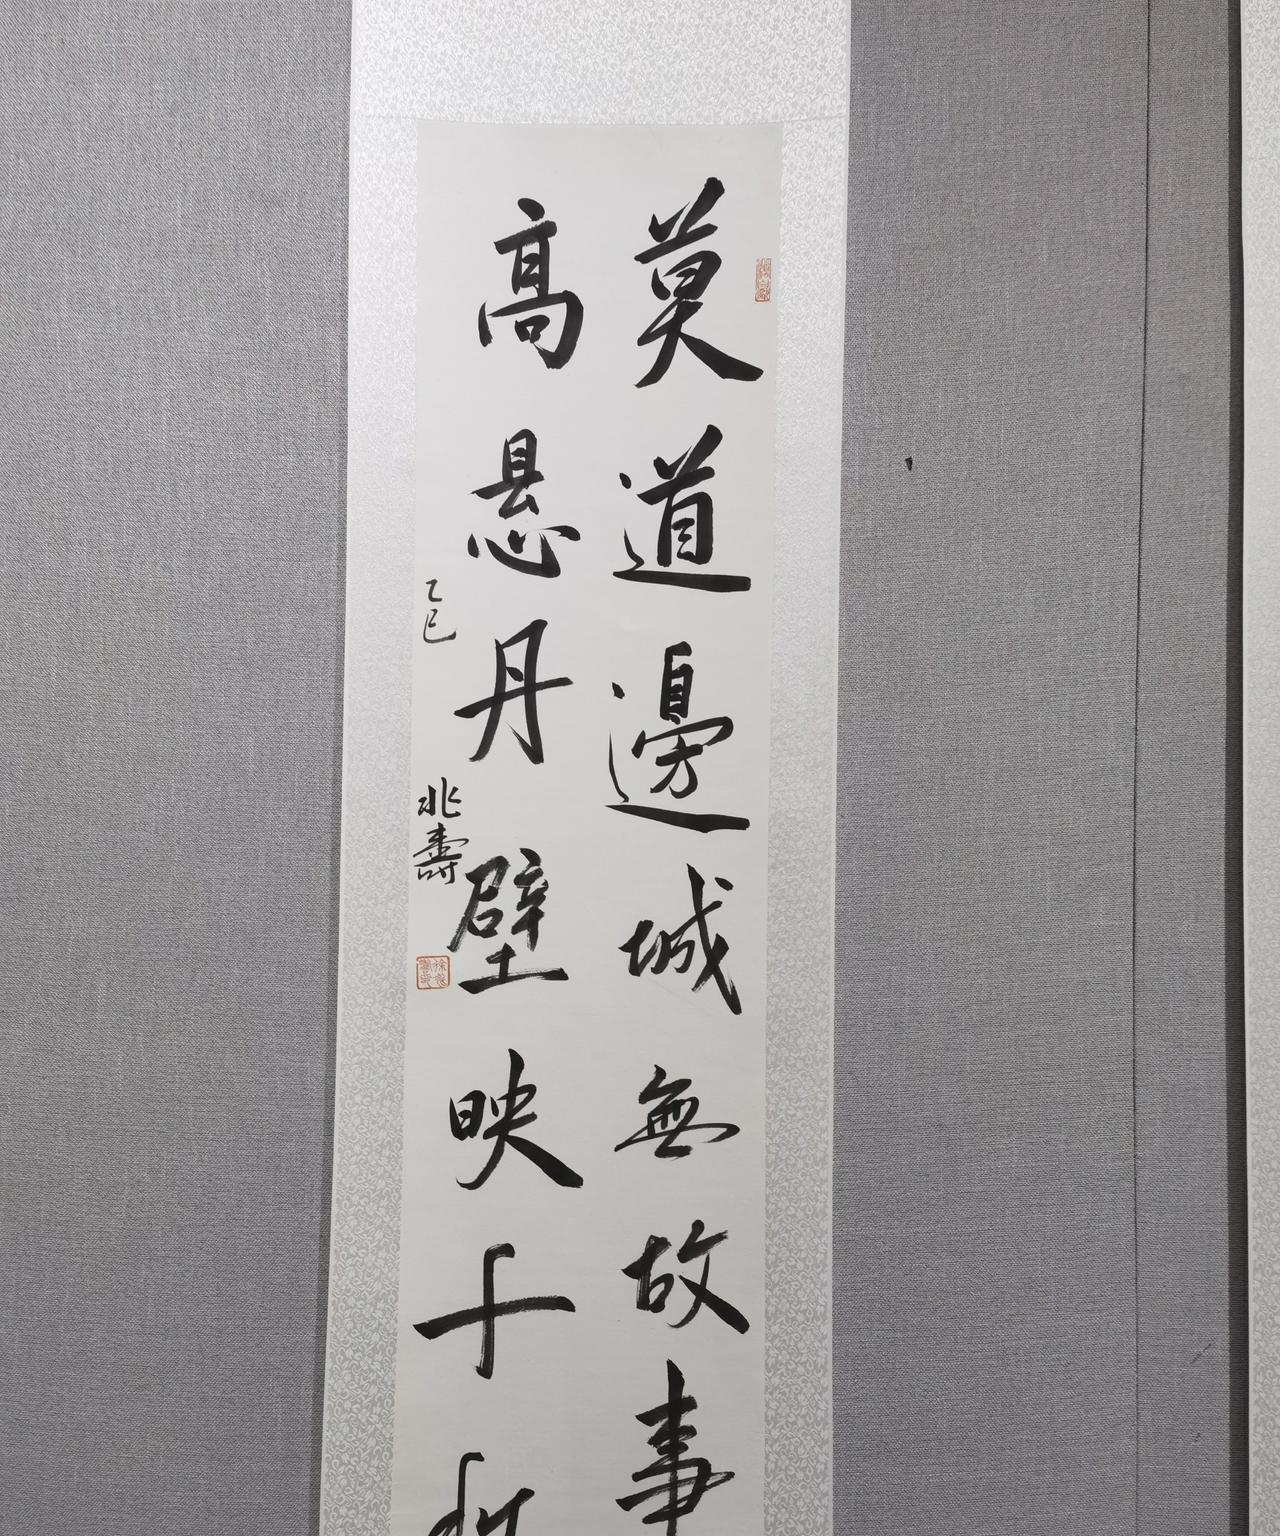 莫道邊城無故事
高悬丹壁映千秋
乙巳
兆壽